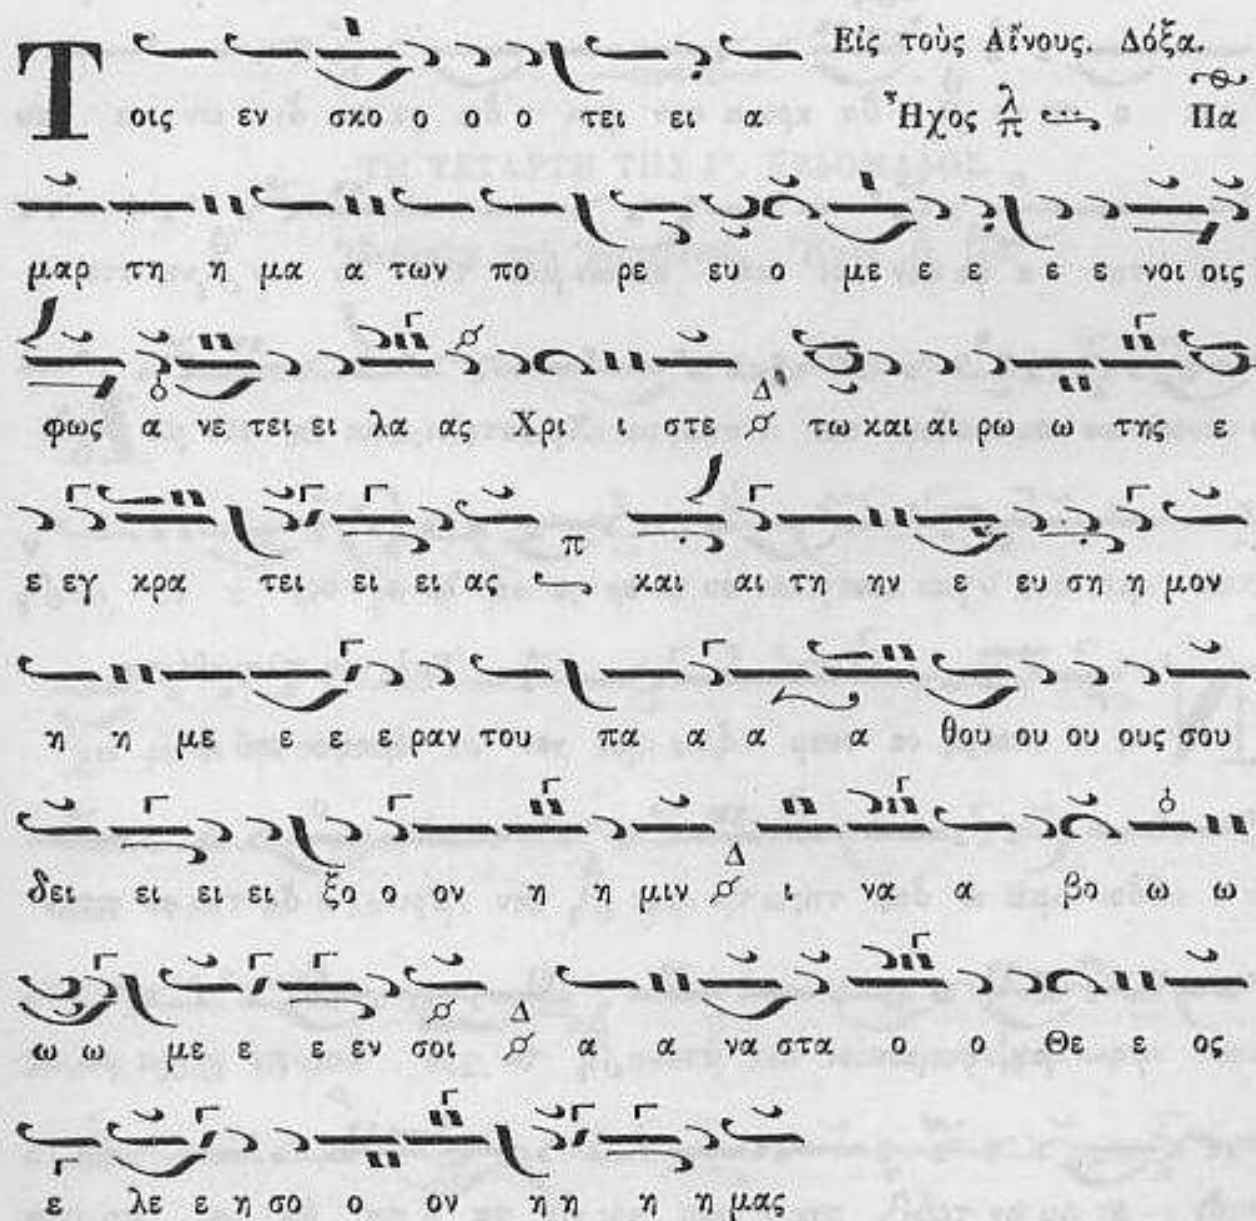 Εἰς τοὺς Αἴνους. Δόξα.
Τοις εν σκο ο ο ο τει ει α Ἦχος λ π Πα
μαρ τη η μα α των πο ρε ευ ο με ε ε ε ε νοι οις
φως α νε τει ει λα ας Χρι ι στε Δ τω και αι ρω ω της ε
ε εγ κρα τει ει ει ας π και αι τη ην ε ευ ση η μον
η η με ε ε ε ραν του πα α α α θου ου ου ους σου
δει ει ει ει ξο ο ον η η μιν Δ ι να α βο ω ω
ω ω με ε ε εν σοι Δ α α να στα ο ο Θε ε ος
ε λε ε η σο ο ον η η η η μας